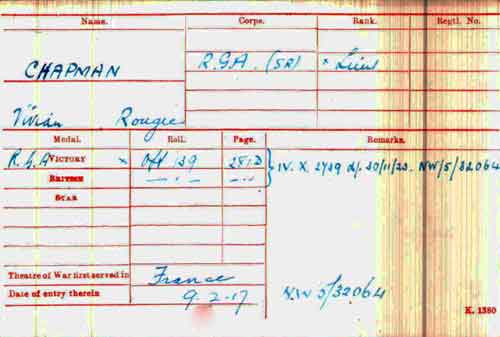 Name. Corps. Rank. Regtl. No.
CHAPMAN R.G.A. (SR) × Lieut
Vivian Rougie
Medal. Roll. Page. Remarks.
R.G.A VICTORY × Off 139 281D IV. X. 2729 d/. 30/11/23. NW/5/32064
BRITISH —„— —„—
STAR
Theatre of War first served in France
Date of entry therein 9.2.17 N.W 5/32064
K. 1380